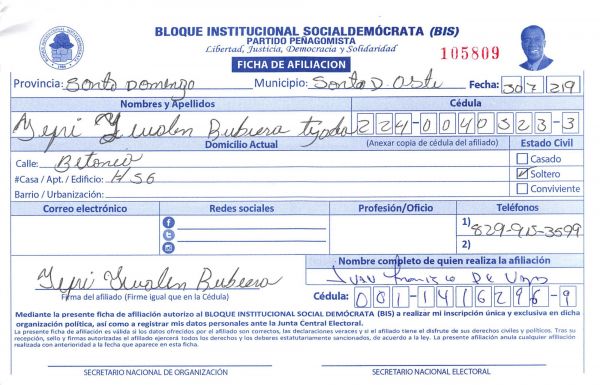 BLOQUE INSTITUCIONAL SOCIALDEMÓCRATA (BIS)
PARTIDO PEÑAGOMISTA
Libertad, Justicia, Democracia y Solidaridad
FICHA DE AFILIACION
105809
Provincia: Sonto Domingo Municipio: Sonto D. Oste Fecha: 30 7 219
Nombres y Apellidos Cédula
Yepri 224-0040523-3
Domicilio Actual (Anexar copia de cédula del afiliado) Estado Civil
Calle: Betonia Casado
#Casa / Apt. / Edificio: H 56 Soltero
Barrio / Urbanización: Conviviente
Correo electrónico Redes sociales Profesión/Oficio Teléfonos
1) 829-915-3599
2)
Nombre completo de quien realiza la afiliación
Yepri
Juan Francisco De
Firma del afiliado (Firme igual que en la Cédula) Cédula: 001-1416296-9
Mediante la presente ficha de afiliación autorizo al BLOQUE INSTITUCIONAL SOCIAL DEMÓCRATA (BIS) a realizar mi inscripción única y exclusiva en dicha
organización política, así como a registrar mis datos personales ante la Junta Central Electoral.
La presente ficha de afiliación es válida si los datos ofrecidos por el afiliado son correctos, las declaraciones veraces y si el afiliado tiene el disfrute de sus derechos civiles y políticos. Tras su
recepción, sello y firmas autorizadas el afiliado ejercerá todos los derechos y los deberes estatutariamente sancionados, de acuerdo a la ley. La presente afiliación anula cualquier afiliación
realizada con anterioridad a la fecha que aparece en esta ficha.
SECRETARIO NACIONAL DE ORGANIZACIÓN SECRETARIO NACIONAL ELECTORAL